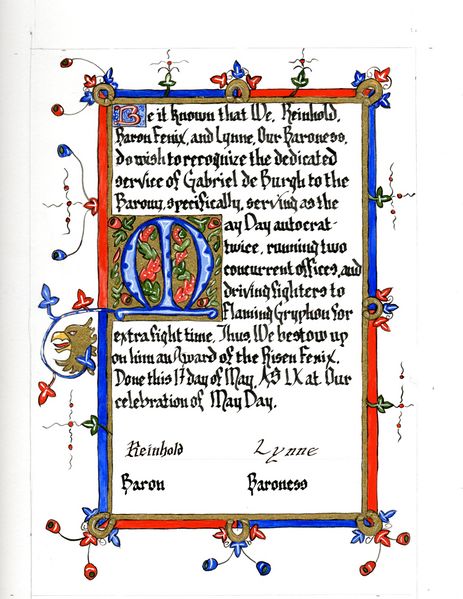 Be it known that We, Reinhold,
Baron Fenix, and Lynne, Our Baroness,
do wish to recognize the dedicated
service of Gabriel de Burgh to the
Barony, specifically, serving as the
May Day autocrat
twice, running two
concurrent offices, and
driving fighters to
Flaming Gryphon for
extra fight time. Thus, We bestow up
on him an Award of the Risen Fenix.
Done this 17 day of May, AS LX at Our
celebration of May Day.
Reinhold Lynne
Baron Baroness